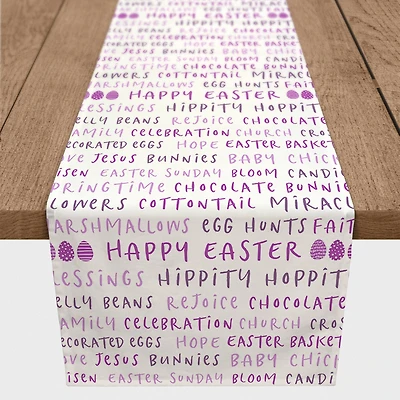 HAPPY EASTER
LESSINGS HIPPITY HOPPIT
ELLY BEANS REJOICE CHOCOLATE
FAMILY CELEBRATION CHURCH
ECORATED EGGS HOPE EASTER BASKET
OVE JESUS BUNNIES BABY CHICK
ISEN EASTER SUNDAY BLOOM CANDIE
PRINGTIME CHOCOLATE BUNNIE
LOWERS COTTONTAIL MIRACL
ARSHMALLOWS EGG HUNTS FAIT
HAPPY EASTER
LESSINGS HIPPITY HOPPIT
ELLY BEANS REJOICE CHOCOLATE
FAMILY CELEBRATION CHURCH CROS
ECORATED EGGS HOPE EASTER BASKET
OVE JESUS BUNNIES BABY CHICK
ISEN EASTER SUNDAY BLOOM CANDIE
PRINGTIME CHOCOLATE BUNNIE
LOWERS COTTONTAIL MIRACL
ARSHMALLOWS EGG HUNTS FAIT
HAPPY EASTER
LESSINGS HIPPITY HOPPIT
ELLY BEANS REJOICE CHOCOLATE
FAMILY CELEBRATION CHURCH CROS
ECORATED EGGS HOPE EASTER BASKET
OVE JESUS BUNNIES BABY CHICK
ISEN EASTER SUNDAY BLOOM CANDI